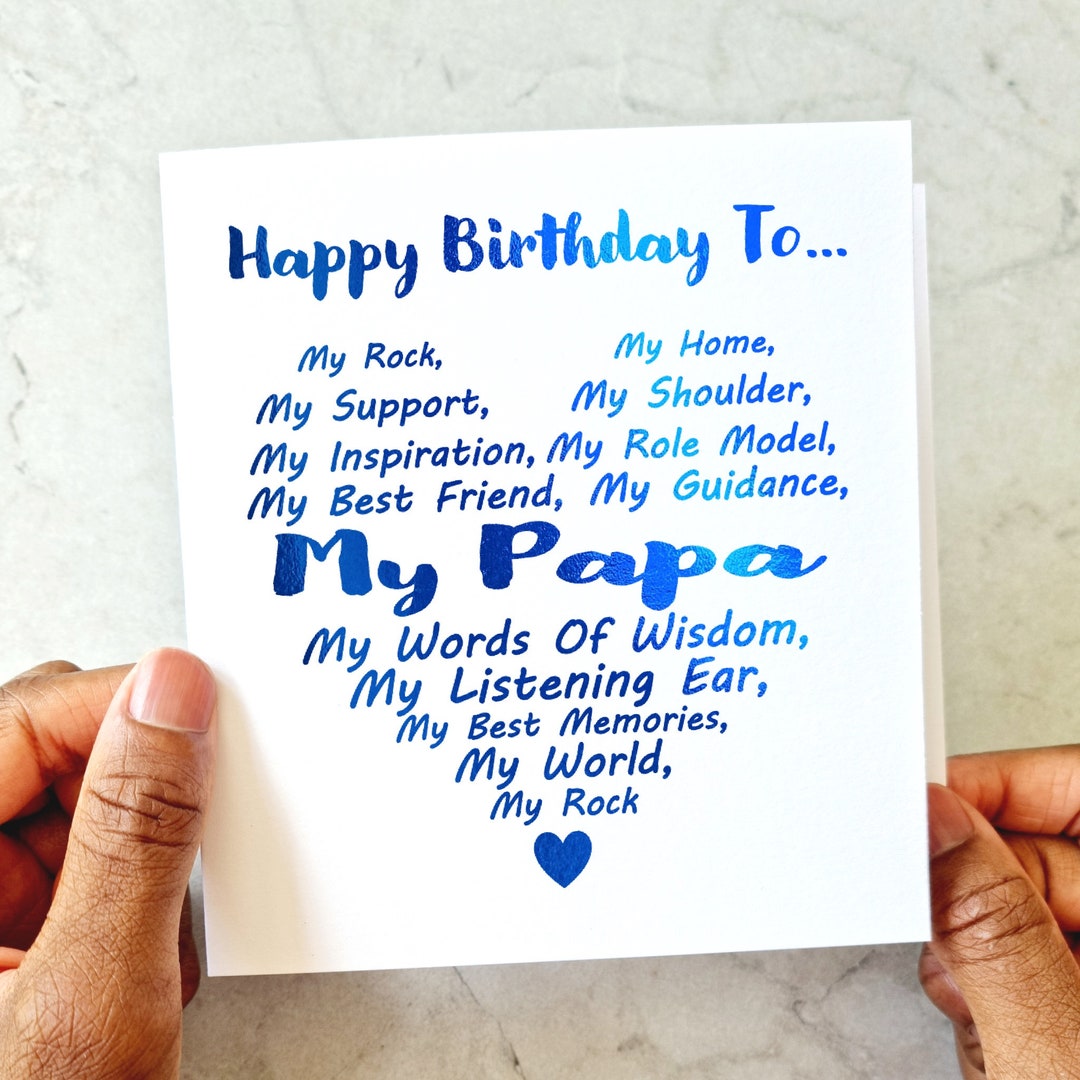 Happy Birthday To...
My Rock, My Home,
My Support, My Shoulder,
My Inspiration, My Role Model,
My Best Friend, My Guidance,
My Papa
My Words Of Wisdom,
My Listening Ear,
My Best Memories,
My World,
My Rock